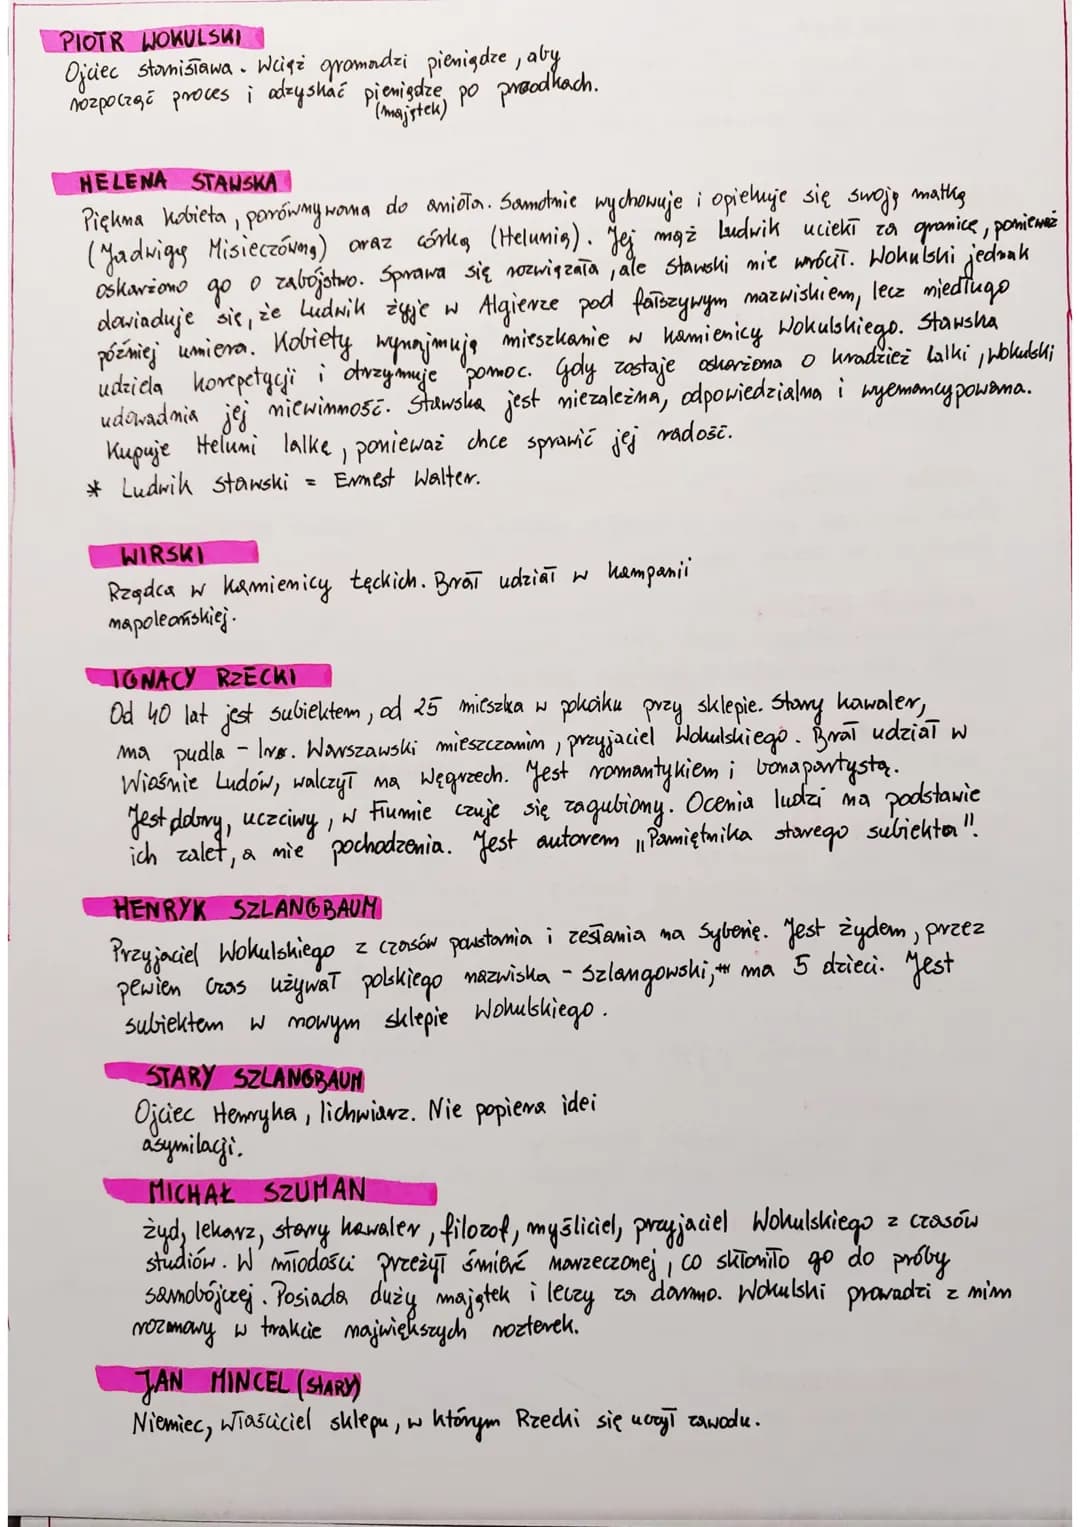 PIOTR WOKULSKI
Ojciec Stanisława. Wciąż gromadzi pieniądze, aby
rozpocząć proces i odzyskać pieniądze po przodkach.
(majątek)
HELENA STAWSKA
Piękna kobieta, porównywana do anioła. Samotnie wychowuje i opiekuje się swoją matką
(Jadwigą Misieczówną) oraz córką (Helunią). Jej mąż Ludwik uciekł za granicę, ponieważ
oskarżono go o zabójstwo. Sprawa się rozwiązała, ale Stawski nie wrócił. Wokulski jednak
dowiaduje się, że Ludwik żyje w Algierze pod fałszywym nazwiskiem, lecz niedługo
później umiera. Kobiety wynajmują mieszkanie w kamienicy Wokulskiego. Stawska
udziela korepetycji i otrzymuje pomoc. Gdy zostaje oskarżona o kradzież lalki, Wokulski
udowadnia jej niewinność. Stawska jest niezależna, odpowiedzialna i wyemancypowana.
Kupuje Heluni lalkę, ponieważ chce sprawić jej radość.
* Ludwik Stawski = Ernest Walter.
WIRSKI
Rządca w kamienicy Łęckich. Brał udział w kampanii
napoleońskiej.
IGNACY RZECKI
Od 40 lat jest subiektem, od 25 mieszka w pokoiku przy sklepie. Stary kawaler,
ma pudla - Ira. Warszawski mieszczanin, przyjaciel Wokulskiego. Brał udział w
Wiośnie Ludów, walczył na Węgrzech. Jest romantykiem i bonapartystą.
Jest dobry, uczciwy, w tłumie czuje się zagubiony. Ocenia ludzi na podstawie
ich zalet, a nie pochodzenia. Jest autorem „Pamiętnika starego subiekta".
HENRYK SZLANGBAUM
Przyjaciel Wokulskiego z czasów powstania i zesłania na Syberię. Jest żydem, przez
pewien czas używał polskiego nazwiska - Szlangowski, ma 5 dzieci. Jest
subiektem w nowym sklepie Wokulskiego.
STARY SZLANGBAUM
Ojciec Henryka, lichwiarz. Nie popiera idei
asymilacji.
MICHAŁ SZUMAN
żyd, lekarz, stary kawaler, filozof, myśliciel, przyjaciel Wokulskiego z czasów
studiów. W młodości przeżył śmierć narzeczonej, co skłoniło go do próby
samobójczej. Posiada duży majątek i leczy za darmo. Wokulski prowadzi z nim
rozmowy w trakcie największych rozterek.
JAN MINCEL (STARY)
Niemiec, właściciel sklepu, w którym Rzecki się uczył zawodu.